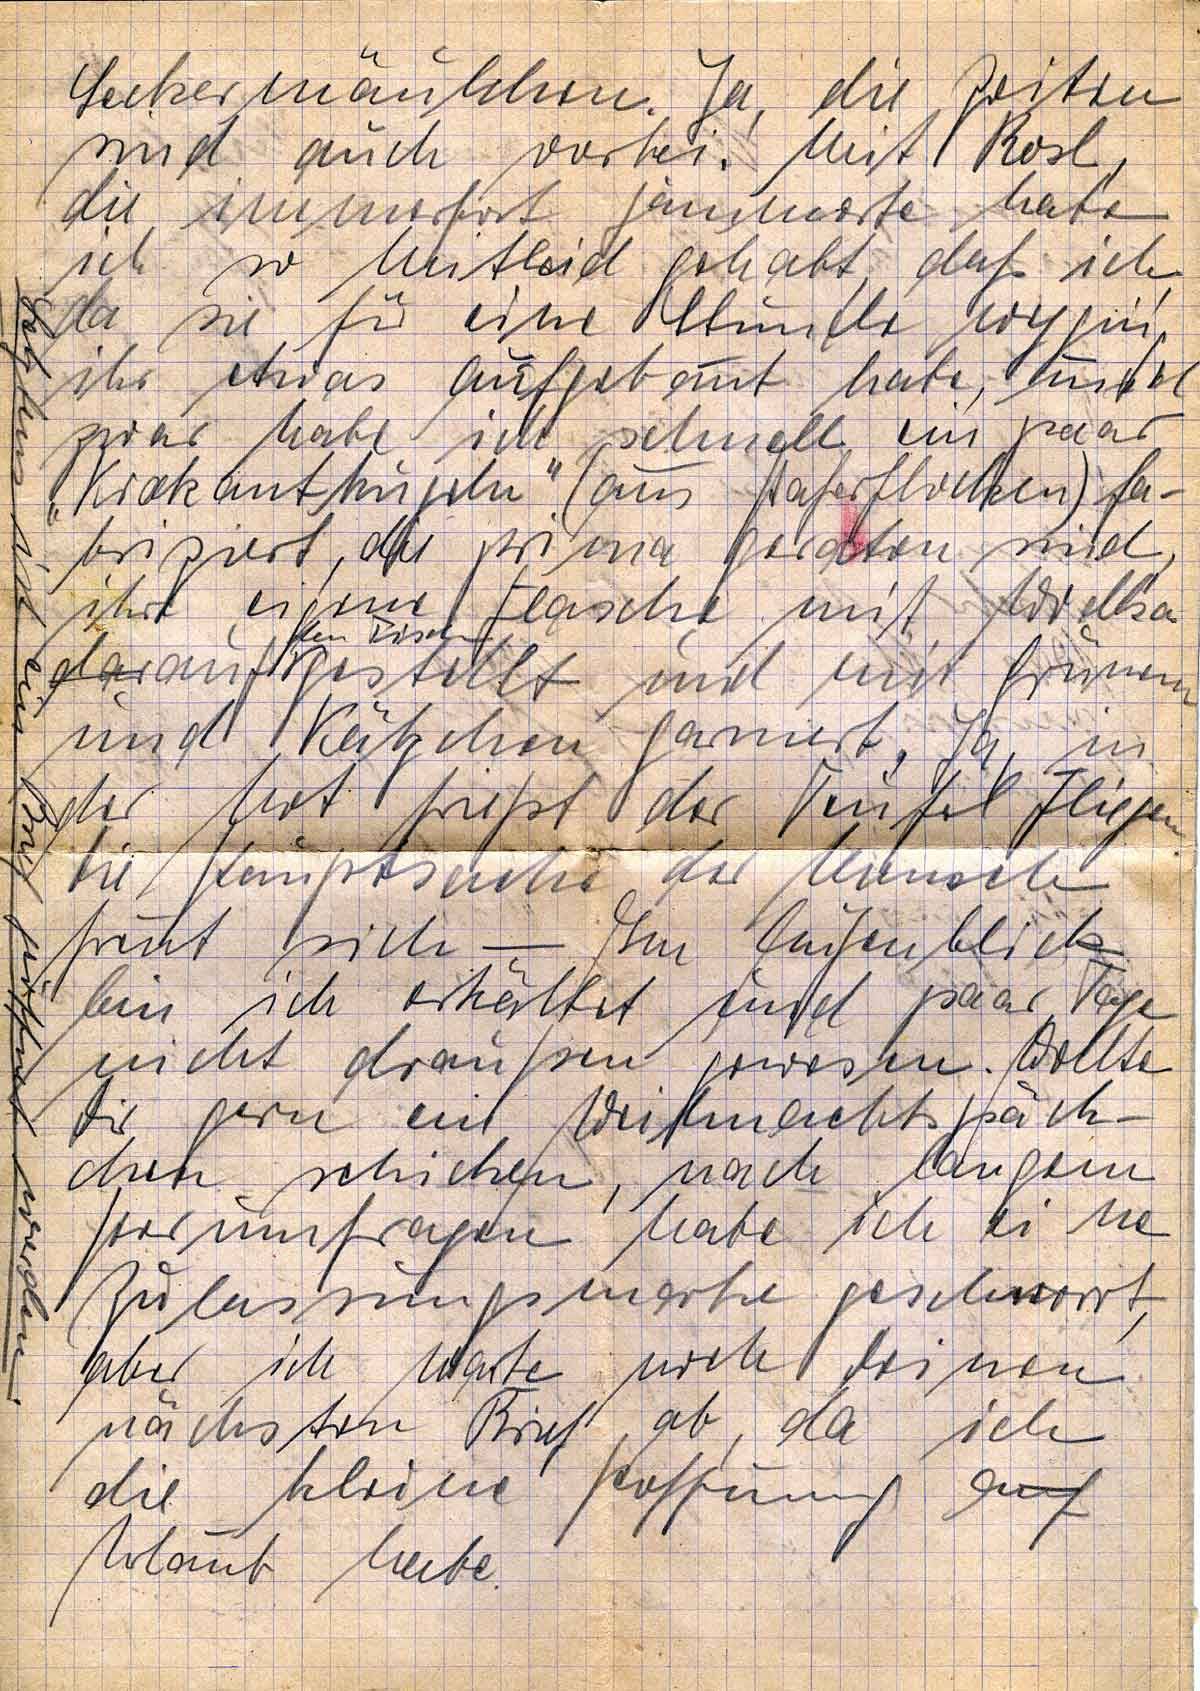 Leckermäulchen. Ja, die Zeiten
sind auch vorbei. Mit Rosl,
die immerfort jammerte habe
ich so Mitleid gehabt, daß ich,
da sie für eine Stunde wegging,
ihr etwas aufgebaut habe, und
zwar habe ich schnell ein paar
„Krokantkugeln" (aus Haferflocken) fa-
briziert, die prima geraten sind,
ihre eigene Flasche mit Wodka
den Tisch
darauf gestellt und mit Grünem
und Kätzchen garniert. Ja, in
der Not frißt der Teufel Fliegen
die Hauptsache der Mensch
freut sich — Im Augenblick
bin ich erkältet und paar Tage
nicht draußen gewesen. Wollte
Dir gern ein Weihnachtspäck-
chen schicken, nach langem
Herumfragen habe ich eine
Zulassungsmarke geschnorrt,
aber ich warte noch Deinen
nächsten Brief ab, da ich
die kleine Hoffnung auf
Urlaub habe.
ein Brief geöffnet worden.